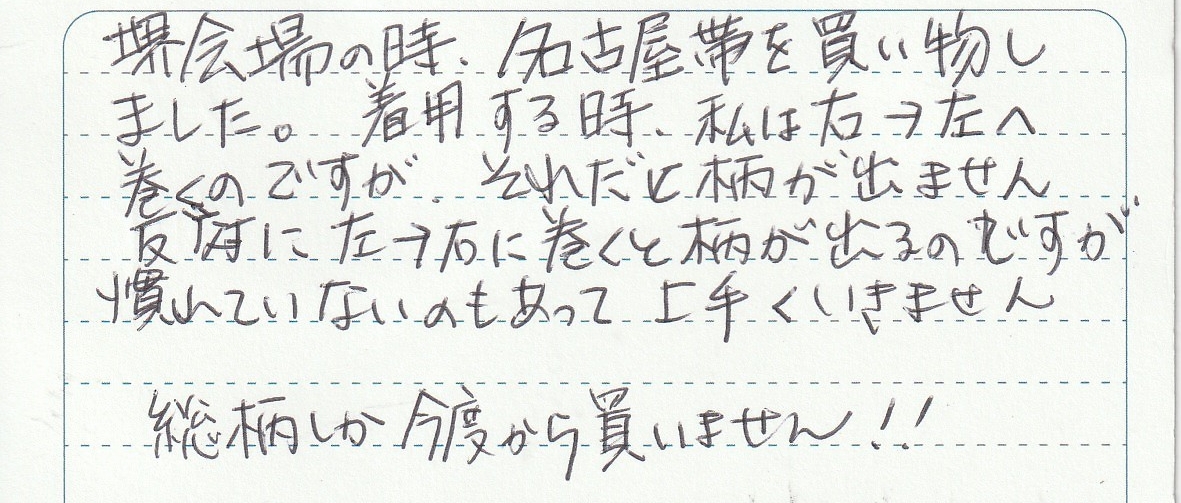 堺会場の時、名古屋帯を買い物し
ました。着用する時、私は右→左へ
巻くのですが、それだと柄が出ません
反対に左→右に巻くと柄が出るのですが
慣れていないのもあって上手くいきません
総柄しか今度から買いません!!